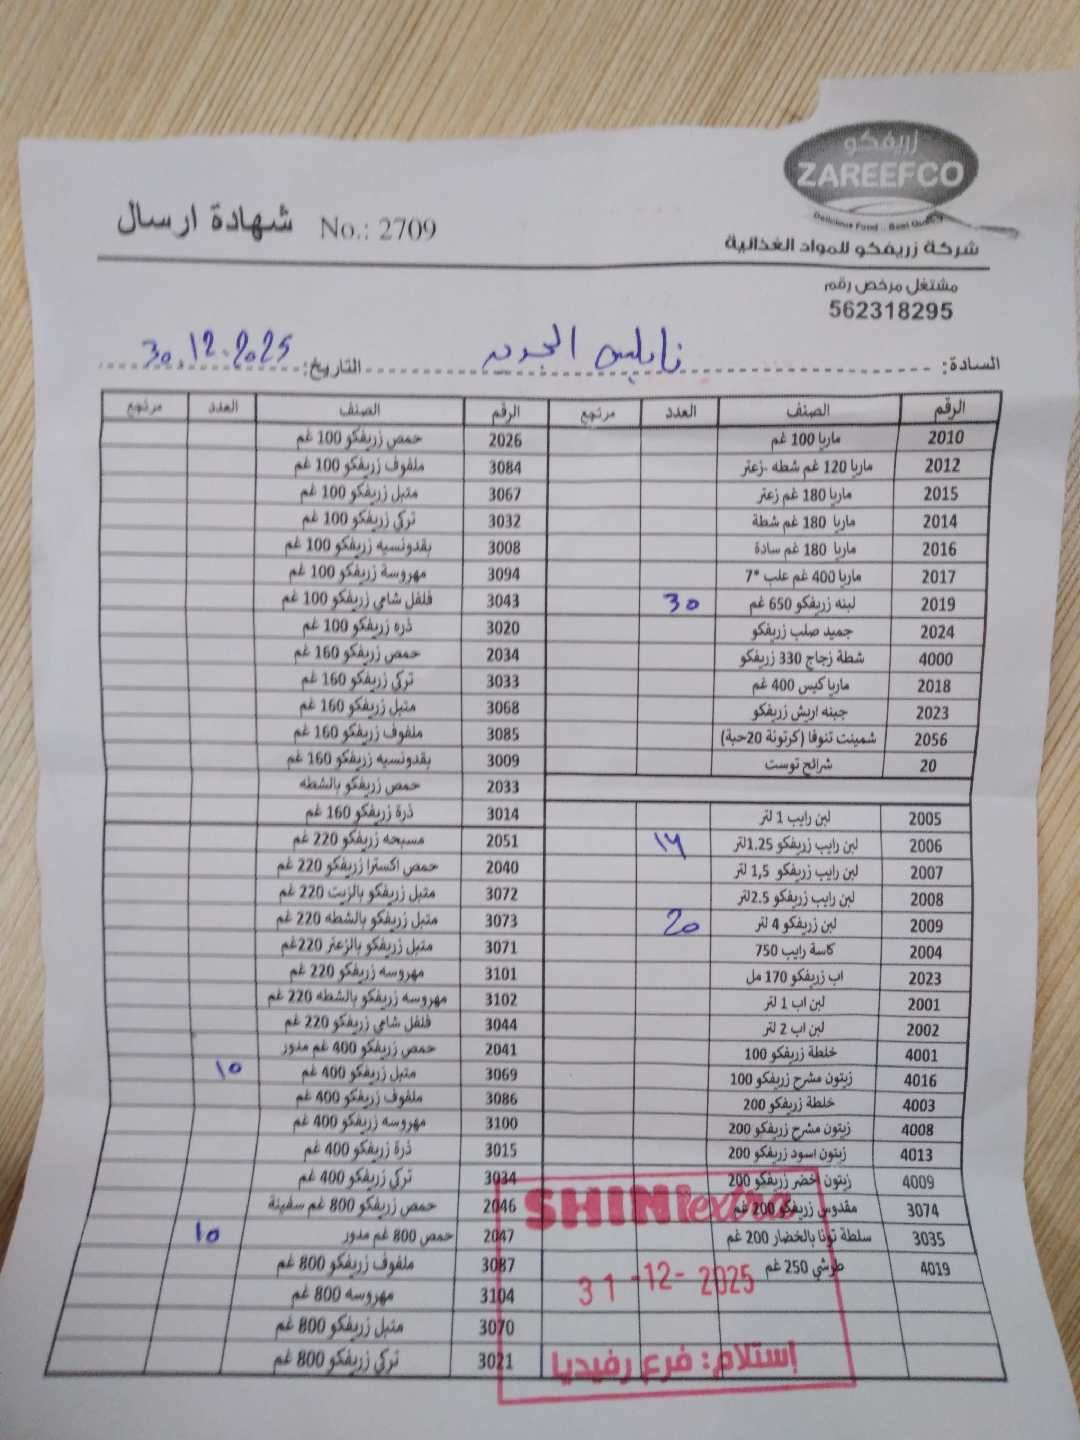 زريفكو
ZAREEFCO
Delicious Food .. Best Quality
شركة زريفكو للمواد الغذائية
شهادة ارسال No.: 2709
مشتغل مرخص رقم
562318295
السادة: نابلس الجديد التاريخ: 30.12.2025
الرقم الصنف العدد مرتجع الرقم الصنف العدد مرتجع
2010 ماريا 100 غم 2026 حمص زريفكو 100 غم
2012 ماريا 120 غم شطه -زعتر 3084 ملفوف زريفكو 100 غم
2015 ماريا 180 غم زعتر 3067 متبل زريفكو 100 غم
2014 ماريا 180 غم شطة 3032 تركي زريفكو 100 غم
2016 ماريا 180 غم سادة 3008 بقدونسيه زريفكو 100 غم
2017 ماريا 400 غم علب *7 3094 مهروسة زريفكو 100 غم
2019 لبنه زريفكو 650 غم 30 3043 فلفل شامي زريفكو 100 غم
2024 جميد صلب زريفكو 3020 ذره زريفكو 100 غم
4000 شطة زجاج 330 زريفكو 2034 حمص زريفكو 160 غم
2018 ماريا كيس 400 غم 3033 تركي زريفكو 160 غم
2023 جبنه اريش زريفكو 3068 متبل زريفكو 160 غم
2056 شمينت تنوفا (كرتونة 20حبة) 3085 ملفوف زريفكو 160 غم
20 شرائح توست 3009 بقدونسيه زريفكو 160 غم
2033 حمص زريفكو بالشطه
2005 لبن رايب 1 لتر 3014 ذرة زريفكو 160 غم
2006 لبن رايب زريفكو 1.25لتر 2051 مسبحه زريفكو 220 غم
2007 لبن رايب زريفكو 1,5 لتر 2040 حمص اكسترا زريفكو 220 غم
2008 لبن رايب زريفكو 2.5لتر 3072 متبل زريفكو بالزيت 220 غم
2009 لبن زريفكو 4 لتر 20 3073 متبل زريفكو بالشطه 220 غم
2004 كاسة رايب 750 3071 متبل زريفكو بالزعتر 220غم
2023 اب زريفكو 170 مل 3101 مهروسه زريفكو 220 غم
2001 لبن اب 1 لتر 3102 مهروسه زريفكو بالشطه 220 غم
2002 لبن اب 2 لتر 3044 فلفل شامي زريفكو 220 غم
4001 خلطة زريفكو 100 2041 حمص زريفكو 400 غم مدور
4016 زيتون مشرح زريفكو 100 3069 متبل زريفكو 400 غم 10
4003 خلطة زريفكو 200 3086 ملفوف زريفكو 400 غم
4008 زيتون مشرح زريفكو 200 3100 مهروسه زريفكو 400 غم
4013 زيتون اسود زريفكو 200 3015 ذرة زريفكو 400 غم
4009 زيتون اخضر زريفكو 200 3034 تركي زريفكو 400 غم
3074 مقدوس زريفكو 200 غم 2046 حمص زريفكو 800 غم سفينة
3035 سلطة تونا بالخضار 200 غم 2047 حمص 800 غم مدور 10
4019 طرشي 250 غم 3087 ملفوف زريفكو 800 غم
3104 مهروسه 800 غم
3070 متبل زريفكو 800 غم
3021 تركي زريفكو 800 غم
SHINI extra
31-12-2025
إستلام: فرع رفيديا